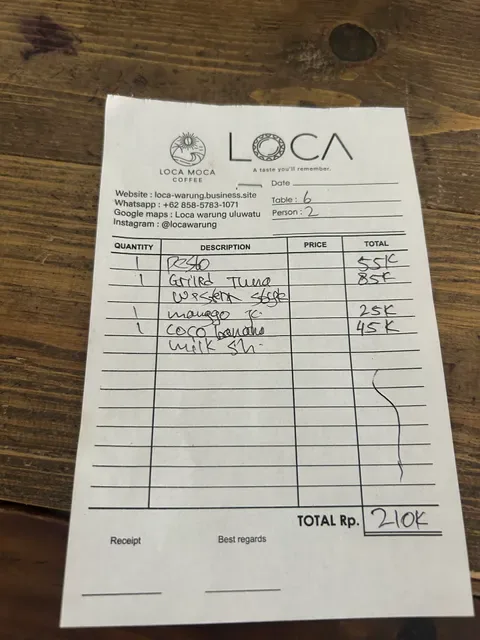 LOCA
A taste you'll remember.
LOCA MOCA
COFFEE
Date
Website : loca-warung.business.site
Whatsapp : +62 858-5783-1071
Google maps : Loca warung uluwatu
Instagram : @locawarung
Table : 6
Person : 2
QUANTITY DESCRIPTION PRICE TOTAL
1 Pesto 55K
1 Grilled Tuna 85K
western style
1 manggo jc. 25K
1 coco banana 45K
milk sh.
TOTAL Rp. 210K
Receipt Best regards